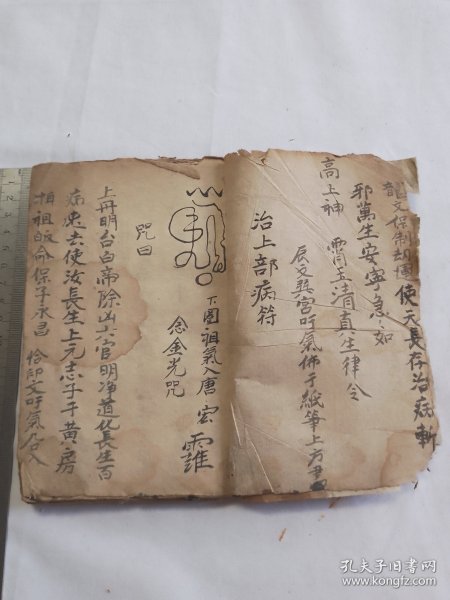 龍文保制劫博使天長存治病斬
邪萬生安寧急〻如
高上神霄玉清真王律令
辰文巽宮吁氣佈于紙筆上方書
治上部病符
下圈祖氣入唐宏
念金光咒
咒曰
上丹明台白帝除凶六宮明淨道化長生百
病速去使汝長生上元志子午黃房
相祖皈命保字永昌 恰卯文吁氣名入
孔夫子旧书网
www.kongfz.com